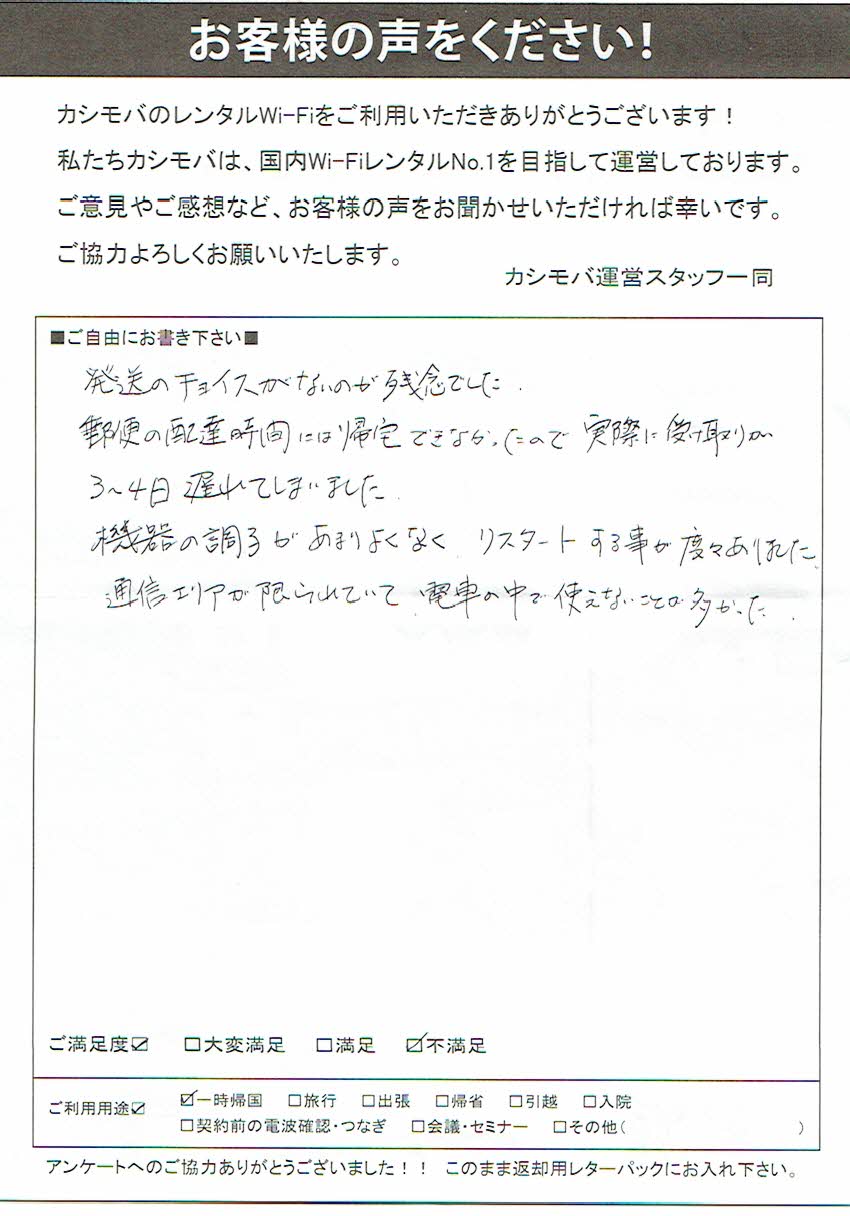 お客様の声をください!
カシモバのレンタルWi-Fiをご利用いただきありがとうございます！
私たちカシモバは、国内Wi-FiレンタルNo.1を目指して運営しております。
ご意見やご感想など、お客様の声をお聞かせいただければ幸いです。
ご協力よろしくお願いいたします。
カシモバ運営スタッフ一同
■ご自由にお書き下さい■
発送のチョイスがないのが残念でした.
郵便の配達時間には帰宅できなかったので 実際に受け取りが
3〜4日 遅れてしまいました.
機器の調子があまりよくなく、リスタートする事が度々ありました。
通信エリアが限られていて、電車の中で使えないことが多かった.
ご満足度☑ □大変満足 □満足 ☑不満足
ご利用用途☑ ☑一時帰国 □旅行 □出張 □帰省 □引越 □入院
□契約前の電波確認・つなぎ □会議・セミナー □その他( )
アンケートへのご協力ありがとうございました！！ このまま返却用レターパックにお入れ下さい。